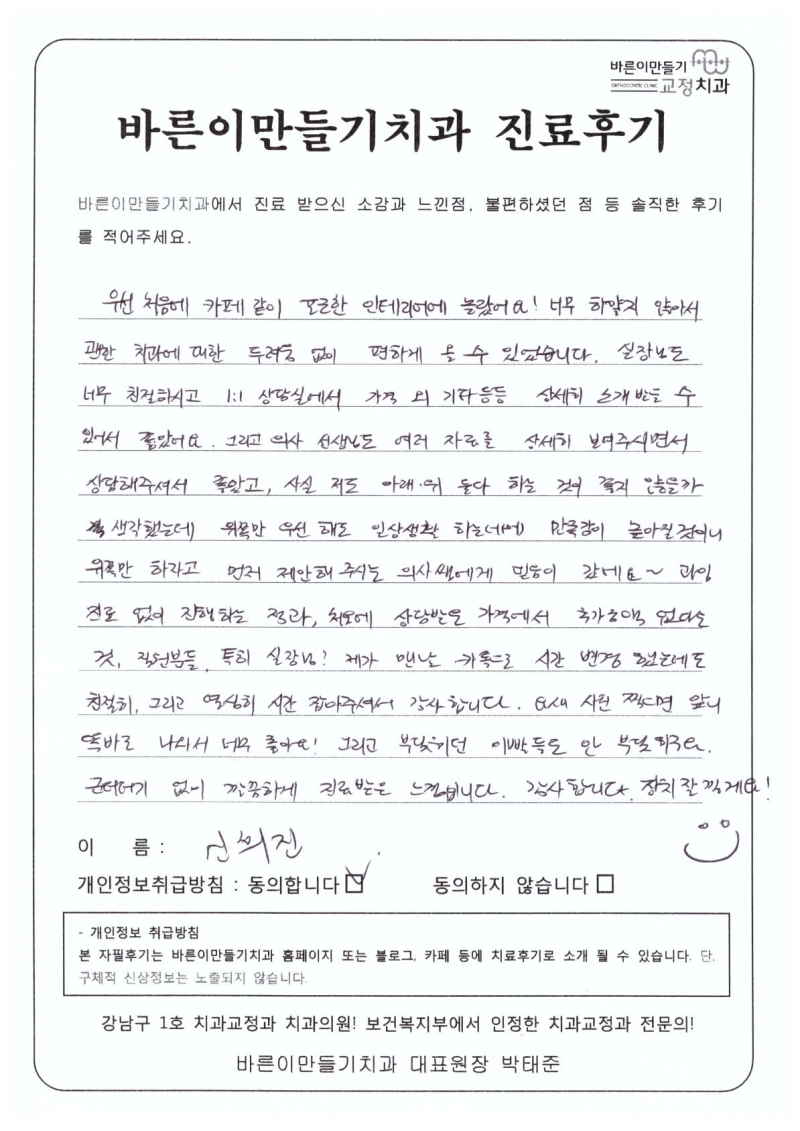 바른이만들기
ORTHODONTIC CLINIC 교정치과
바른이만들기치과 진료후기
바른이만들기치과에서 진료 받으신 소감과 느낀점, 불편하셨던 점 등 솔직한 후기
를 적어주세요.
우선 처음에 카페 같이 포근한 인테리어에 놀랐어요! 너무 하얗지 않아서
괜한 치과에 대한 두려움 없이 편하게 올 수 있었습니다. 실장님도
너무 친절하시고 1:1 상담실에서 가격 외 기타등등 상세히 소개받을 수
있어서 좋았어요. 그리고 의사 선생님도 여러 자료를 상세히 보여주시면서
상담해주셔서 좋았고, 사실 저도 아래·위 둘다 하는 것이 좋지 않을까
생각했는데 위쪽만 우선 해도 일상생활 하는데에 만족감이 높아질것이니
위쪽만 하자고 먼저 제안해 주시는 의사쌤에게 믿음이 갔네요~ 과잉
진료 없이 진행하는 점과, 처음에 상담받은 가격에서 추가금액 없다는
것, 직원분들, 특히 실장님! 제가 맨날 카톡으로 시간 변경 했는데도
친절히, 그리고 열심히 시간 잡아주셔서 감사합니다. 요새 사진 찍으면 앞니
똑바로 나와서 너무 좋아요! 그리고 부딪히던 이빨들도 안 부딪히구요.
군더더기 없이 깔끔하게 진료받은 느낌입니다. 감사합니다. 장치 잘 낄게요!
이 름 : 신희진
개인정보취급방침 : 동의합니다 ☑ 동의하지 않습니다 □
- 개인정보 취급방침
본 자필후기는 바른이만들기치과 홈페이지 또는 블로그, 카페 등에 치료후기로 소개 될 수 있습니다. 단,
구체적 신상정보는 노출되지 않습니다.
강남구 1호 치과교정과 치과의원! 보건복지부에서 인정한 치과교정과 전문의!
바른이만들기치과 대표원장 박태준